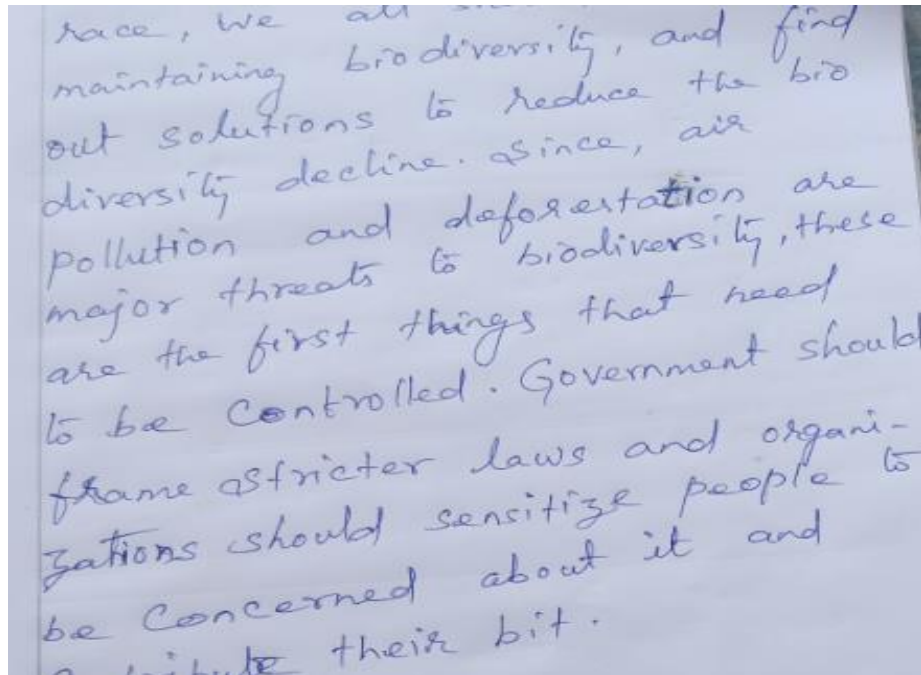 race, we all
maintaining biodiversity, and find
out solutions to reduce the bio
diversity decline. Since, air
pollution and deforestation are
major threats to biodiversity, these
are the first things that need
to be controlled. Government should
frame stricter laws and organi-
zations should sensitize people to
be concerned about it and
their bit.